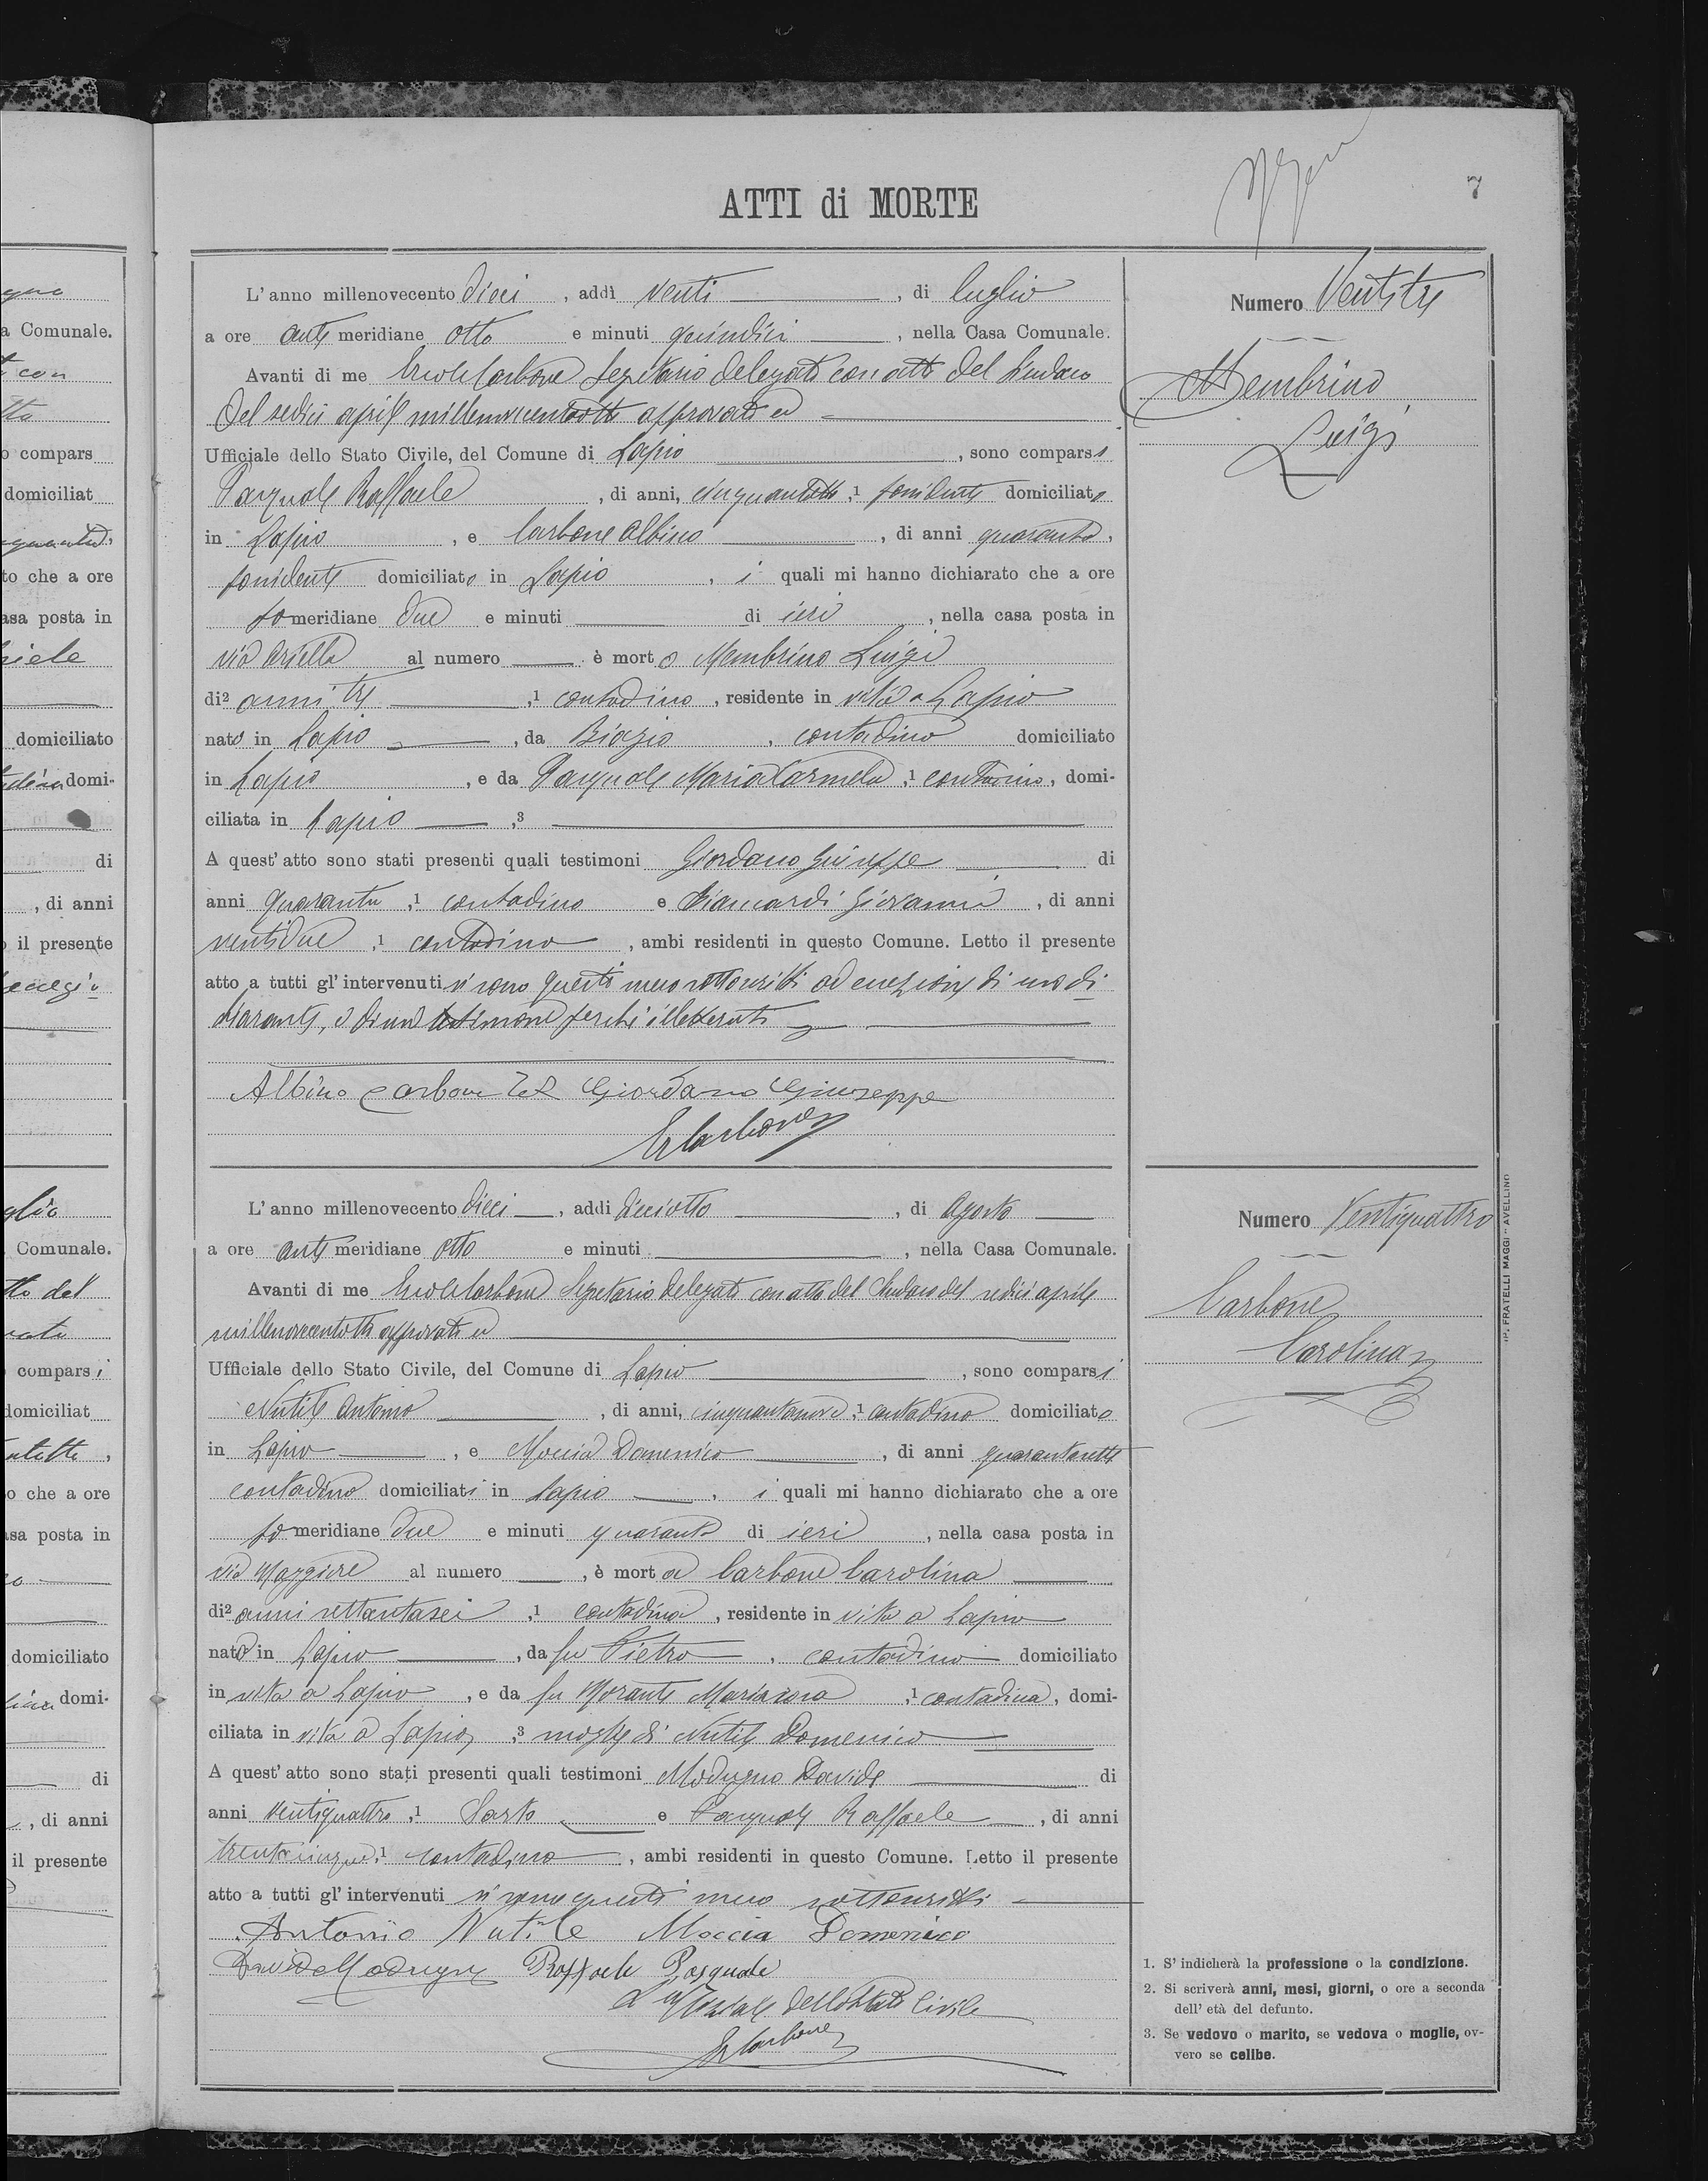 ATTI di MORTE
7
L'anno millenovecento dieci, addì venti, di luglio
a ore anti meridiane otto e minuti quindici, nella Casa Comunale.
Avanti di me Ercole Carbone Segretario delegato con atto del Sindaco
del sedici aprile millenovecentotto approvato ed
Ufficiale dello Stato Civile, del Comune di Lapio, sono comparsi
Pasquale Raffaele, di anni, cinquantotto,1 possidente domiciliato
in Lapio, e Carbone Albino, di anni quaranta,
possidente domiciliato in Lapio, i quali mi hanno dichiarato che a ore
po meridiane due e minuti di ieri, nella casa posta in
via Ariella al numero è morto Membrino Luigi
di2 anni tre,1 contadino, residente in vita a Lapio
nato in Lapio, da Biagio, contadino domiciliato
in Lapio, e da Pasquale Maria Carmela,1 contadina, domi-
ciliata in Lapio,3
A quest'atto sono stati presenti quali testimoni Giordano Giuseppe di
anni quaranta,1 contadino e Giovanni, di anni
ventidue,1 contadino, ambi residenti in questo Comune. Letto il presente
atto a tutti gl'intervenuti si sono questi meco sottoscritti ad eccezione di uno di-
chiarante, e di un testimone perché illetterati
Albino Carbone Giordano Giuseppe
ErCarbone
Numero Ventitre
Membrino
Luigi
L'anno millenovecento dieci, addì diciotto, di Agosto
a ore anti meridiane otto e minuti, nella Casa Comunale.
Avanti di me Ercole Carbone Segretario delegato con atto del Sindaco del sedici aprile
millenovecentotto approvato ed
Ufficiale dello Stato Civile, del Comune di Lapio, sono comparsi
Nutile Antonio, di anni, cinquantanove,1 contadino domiciliato
in Lapio, e Moccia Domenico, di anni quarantasette
contadino domiciliati in Lapio, i quali mi hanno dichiarato che a ore
po meridiane due e minuti quaranta di ieri, nella casa posta in
via Maggiore al numero, è morta Carbone Carolina
di2 anni settantasei,1 contadina, residente in vita a Lapio
nata in Lapio, da fu Pietro, contadino domiciliato
in vita a Lapio, e da fu Morante,1 contadina, domi-
ciliata in vita a Lapio,3 moglie di Nutile Domenico
A quest'atto sono stati presenti quali testimoni Modugno Davide di
anni ventiquattro,1 Sarto e Pasquale Raffaele, di anni
trentacinque,1 contadino, ambi residenti in questo Comune. Letto il presente
atto a tutti gl'intervenuti si sono questi meco sottoscritti
Antonio Nutile Moccia Domenico
Davide Modugno Raffaele Pasquale
L'Ufficiale dello Stato Civile
ErCarbone
Numero Ventiquattro
Carbone
Carolina
1. S'indicherà la professione o la condizione.
2. Si scriverà anni, mesi, giorni, o ore a seconda
dell'età del defunto.
3. Se vedovo o marito, se vedova o moglie, ov-
vero se celibe.
TIP. FRATELLI MAGGI - AVELLINO